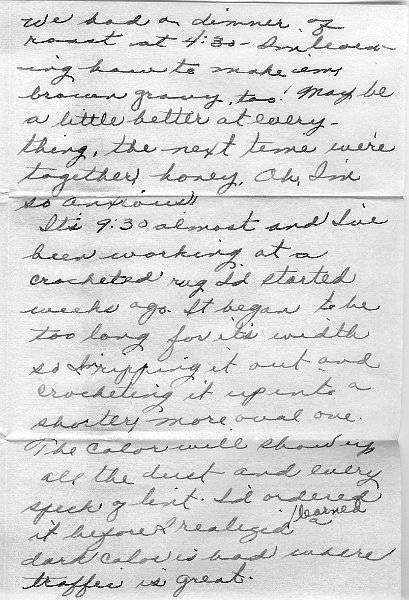 We had a dinner of
roast at 4:30 - I'm learn-
ing how to make em,
brown gravy, too! May be
a little better at every-
thing, the next time we're
together, honey. Oh, I'm
so anxious!
It's 9:30 almost and I've
been working at a
crocheted rug I'd started
weeks ago. It began to be
too long for its width
so I'm ripping it out and
crocheting it up into a
shorter, more oval one.
The color will show up
all the dust and every
speck of lint. I'd ordered
it before I realized learned a
dark color is bad where
traffic is great.